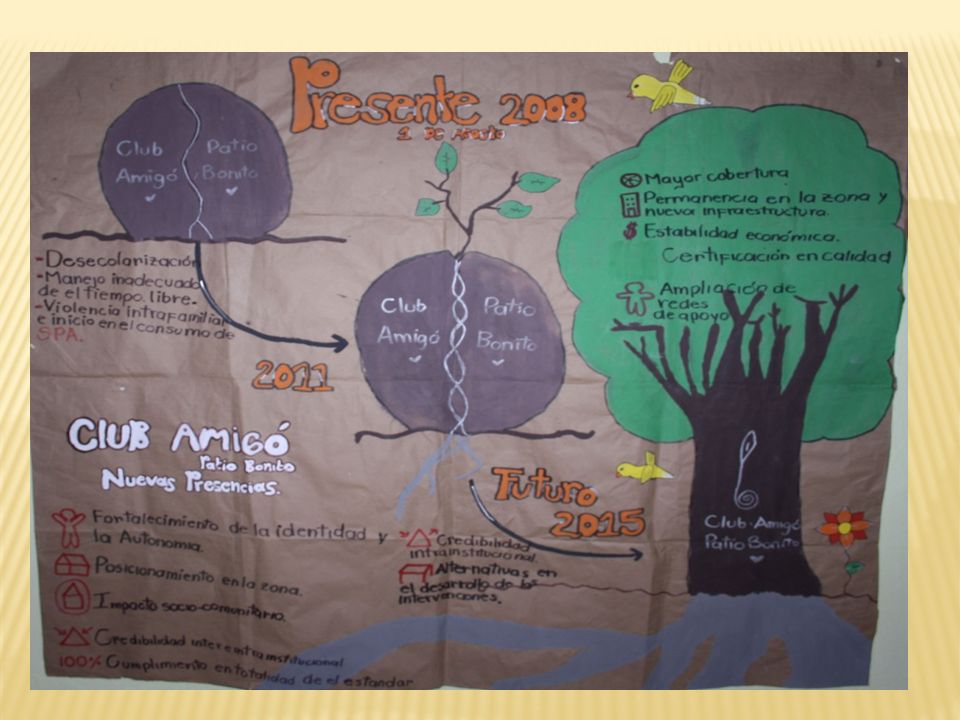 Presente 2008
1 DE Agosto
Club Patio
Amigó Bonito
-Desecolarización
-Manejo inadecuado
de el tiempo libre.
-Violencia intrafamiliar
e inicio en el consumo de
SPA.
2011
Club Patio
Amigó Bonito
Mayor cobertura
Permanencia en la zona y
nueva infraestructura.
$ Estabilidad económica.
Certificación en calidad
Ampliación de
redes
de apoyo
CLUB AMIGÓ
Patio Bonito
Nuevas Presencias.
Futuro
2015
Club-Amigó
Patio Bonito
Fortalecimiento de la identidad y
la Autonomia.
Posicionamiento en la zona.
Impacto socio-comunitario.
Credibilidad inter e intrainstitucional
100% Cumplimiento en totalidad de el estandar
Credibilidad
intrainstitucional.
Alternativas en
el desarrollo de las
intervenciones.